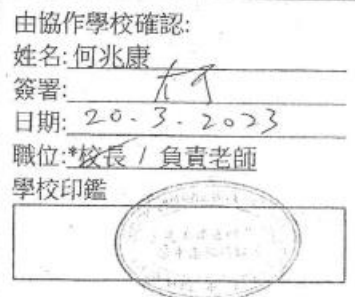 由協作學校確認:
姓名: 何兆康
簽署:
日期: 20.3.2023
職位:*校長 / 負責老師
學校印鑑